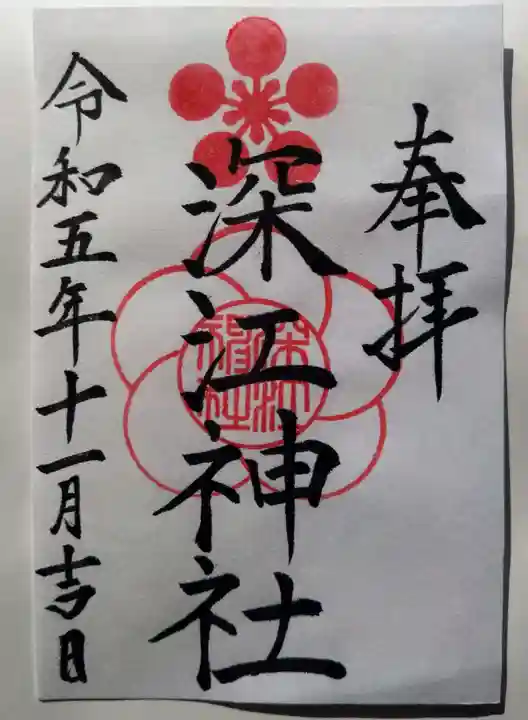 奉拝
深江神社
深江神社
令和五年十一月吉日